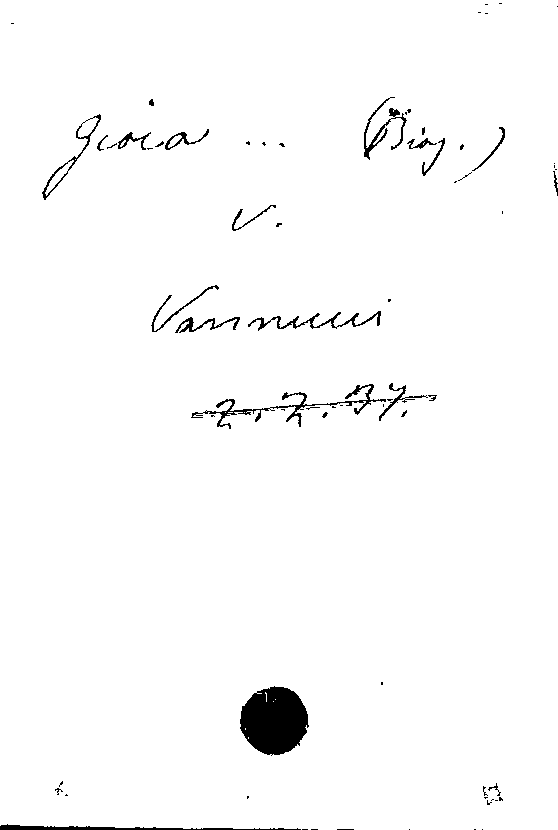 Gioia ... (Biog.)
V.
Vannucci
2. Z. 37.